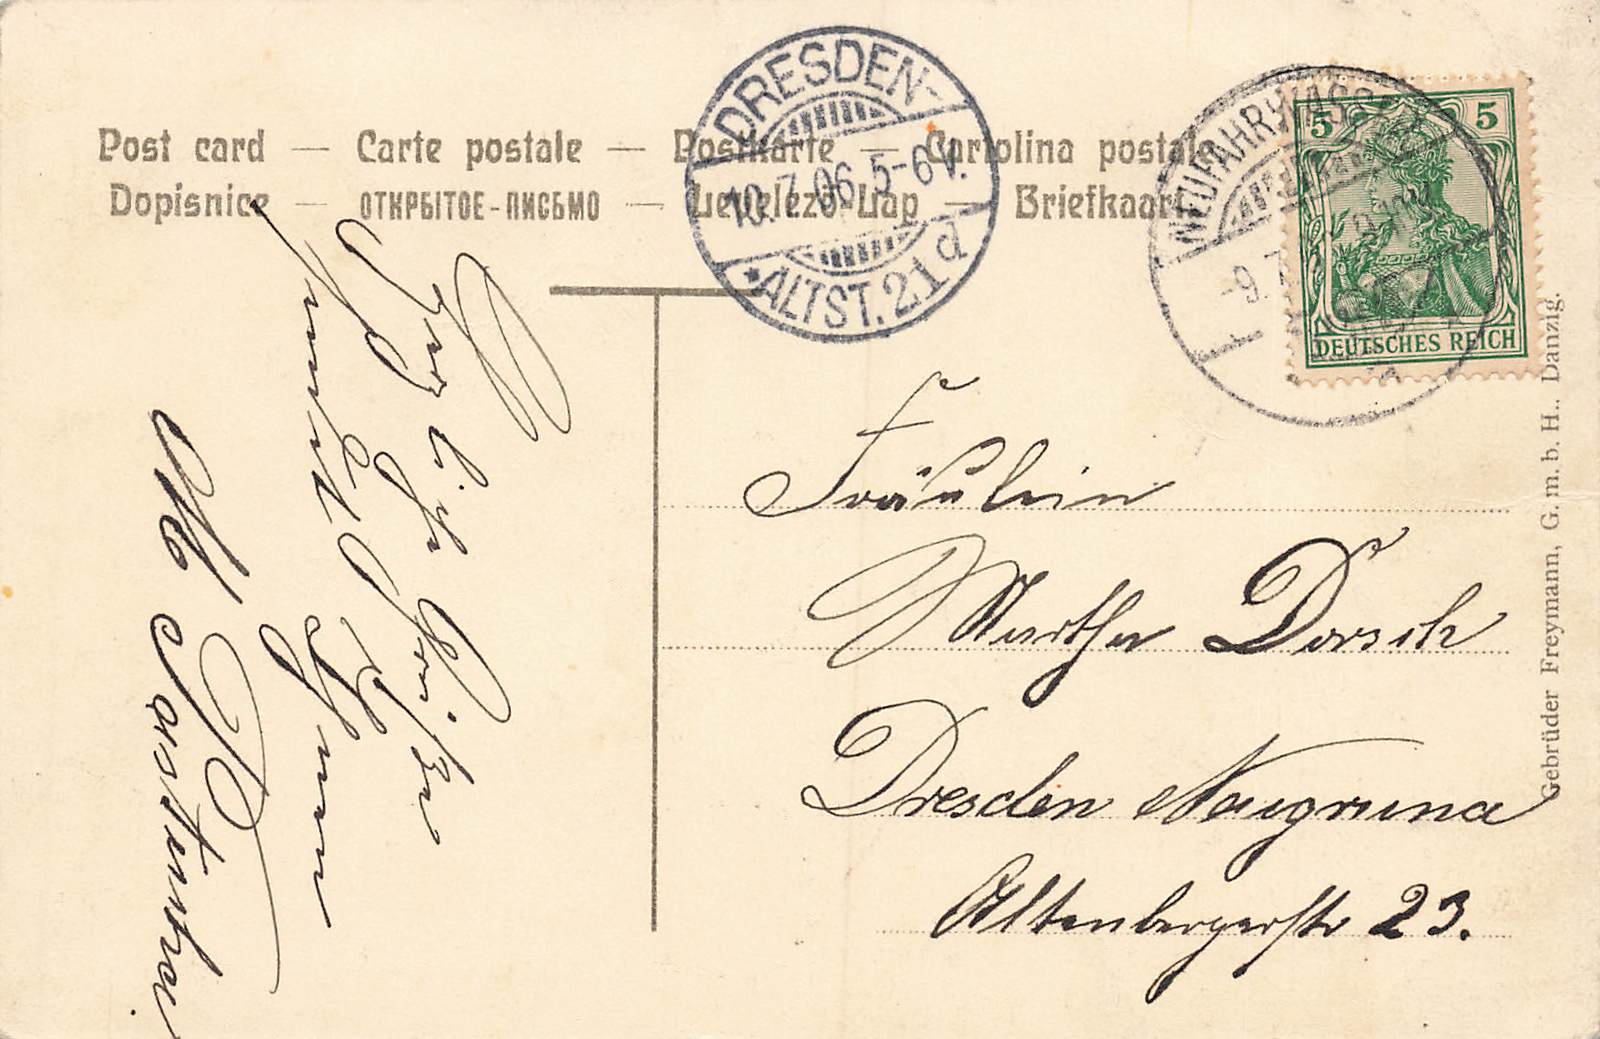 Post card — Carte postale — Postkarte — Cartolina postale
Dopisnice — ОТКРЫТОЕ-ПИСЬМО — Levelező-Lap — Briefkaart
DRESDEN-
10.7.06.5-6V.
*ALTST.21d
NEUFAHRWASSER
-9.7
5 5
DEUTSCHES REICH
Fräulein
Martha Dorsch
Dresden Naugruna
Altenbergerstr 23.
Herzliche Grüße
sendet
Gebrüder Freymann, G.m.b.H., Danzig.